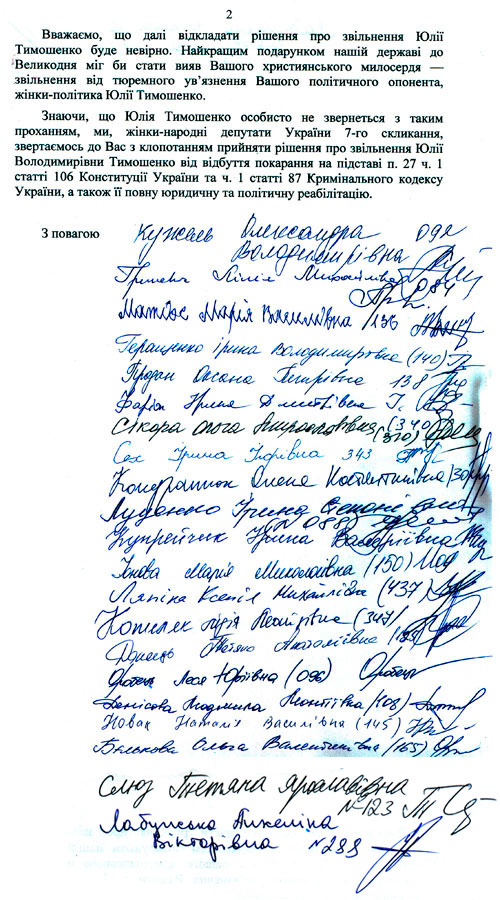 2
Вважаємо, що далі відкладати рішення про звільнення Юлії
Тимошенко буде невірно. Найкращим подарунком нашій державі до
Великодня міг би стати вияв Вашого християнського милосердя —
звільнення від тюремного ув’язнення Вашого політичного опонента,
жінки-політика Юлії Тимошенко.
Знаючи, що Юлія Тимошенко особисто не звернеться з таким
проханням, ми, жінки-народні депутати України 7-го скликання,
звертаємось до Вас з клопотанням прийняти рішення про звільнення Юлії
Володимирівни Тимошенко від відбуття покарання на підставі п. 27 ч. 1
статті 106 Конституції України та ч. 1 статті 87 Кримінального кодексу
України, а також її повну юридичну та політичну реабілітацію.
З повагою
Кужель Олександра
Володимирівна
Гриневич Лілія Михайлівна
084
Матіос Марія Василівна /136
Геращенко Ірина Володимирівна (140)
Продан Оксана Петрівна 138
Фаріон Ірина Дмитрівна
Сікора Ольга (340)
(370)
Сех Ірина Ігорівна 343
Кондратюк Олена Костянтинівна
Луценко Ірина Степанівна
N 088
Купрейчик Ірина Валеріївна
Іонова Марія Миколаївна (150)
Ляпіна Ксенія Михайлівна (437)
Копиляк Лідія (347)
Донець Тетяна Анатоліївна
Оробец Леся Юріївна (096)
Денісова Людмила Леонтіївна (108)
Новак Наталія Василівна (145)
Белькова Ольга Валентинівна (165)
Слюз Тетяна Ярославівна
№123
Лабунська Анжеліна
Вікторівна №299